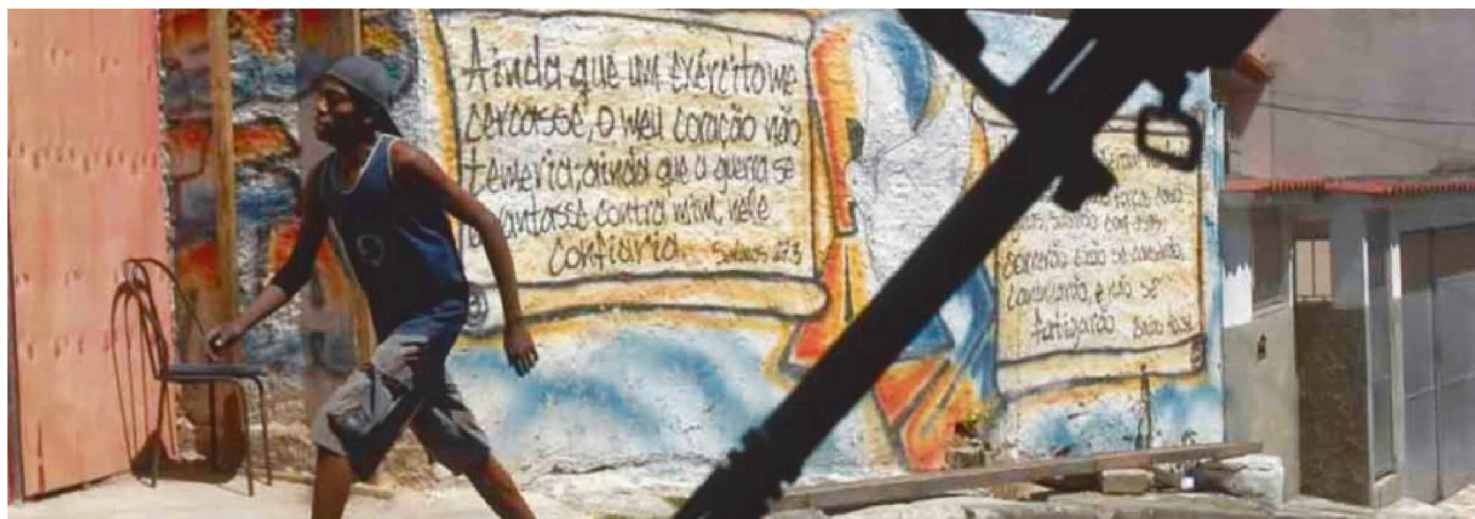 Ainda que um exército me
cercasse, o meu coração não
temeria; ainda que a guerra se
vantasse contra mim, nele
confiaria. Salmos 27.3
força, como
correrão e não se cansarão,
caminharão, e não se
fatigarão